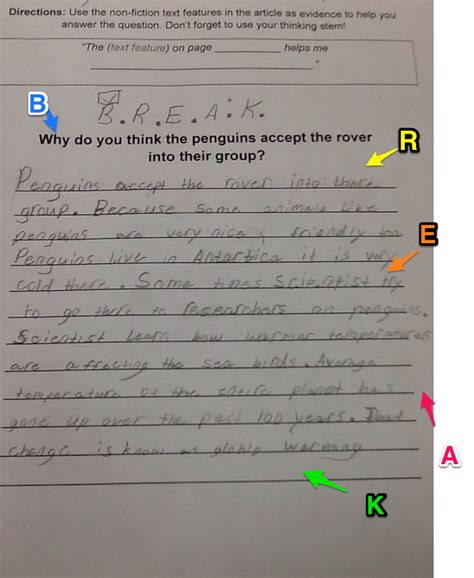 Directions: Use the non-fiction text features in the article as evidence to help you
answer the question. Don't forget to use your thinking stem!
"The (text feature) on page ________ helps me
________."
B.R.E.A.K.
B
Why do you think the penguins accept the rover
into their group?
R
Penguins accept the rover into there
group. Because some animals like
penguins are very nice, friendly too
E
Penguins live in Antartica it is very
cold there. Some times Scientist try
to go there to researchers on penguins.
Scientist learn how warmer temperatures
are affecting the sea birds. Average
temperature of the entire planet has
A
gone up over the past 100 years. That
change is know as globle warming
K